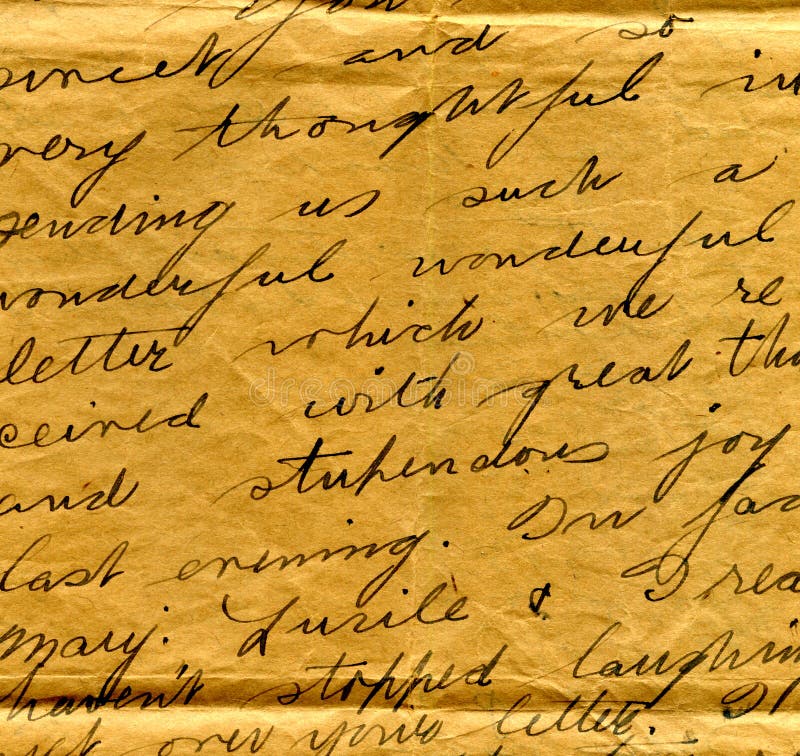 You
sweet and so
very thoughtful in
sending us such a
wonderful wonderful
letter which we re
ceived with great tha
and stupendous joy
last evening. In fac
Mary. Lucile & I rea
haven't stopped laughin
yet over your letter. I
dreamstime